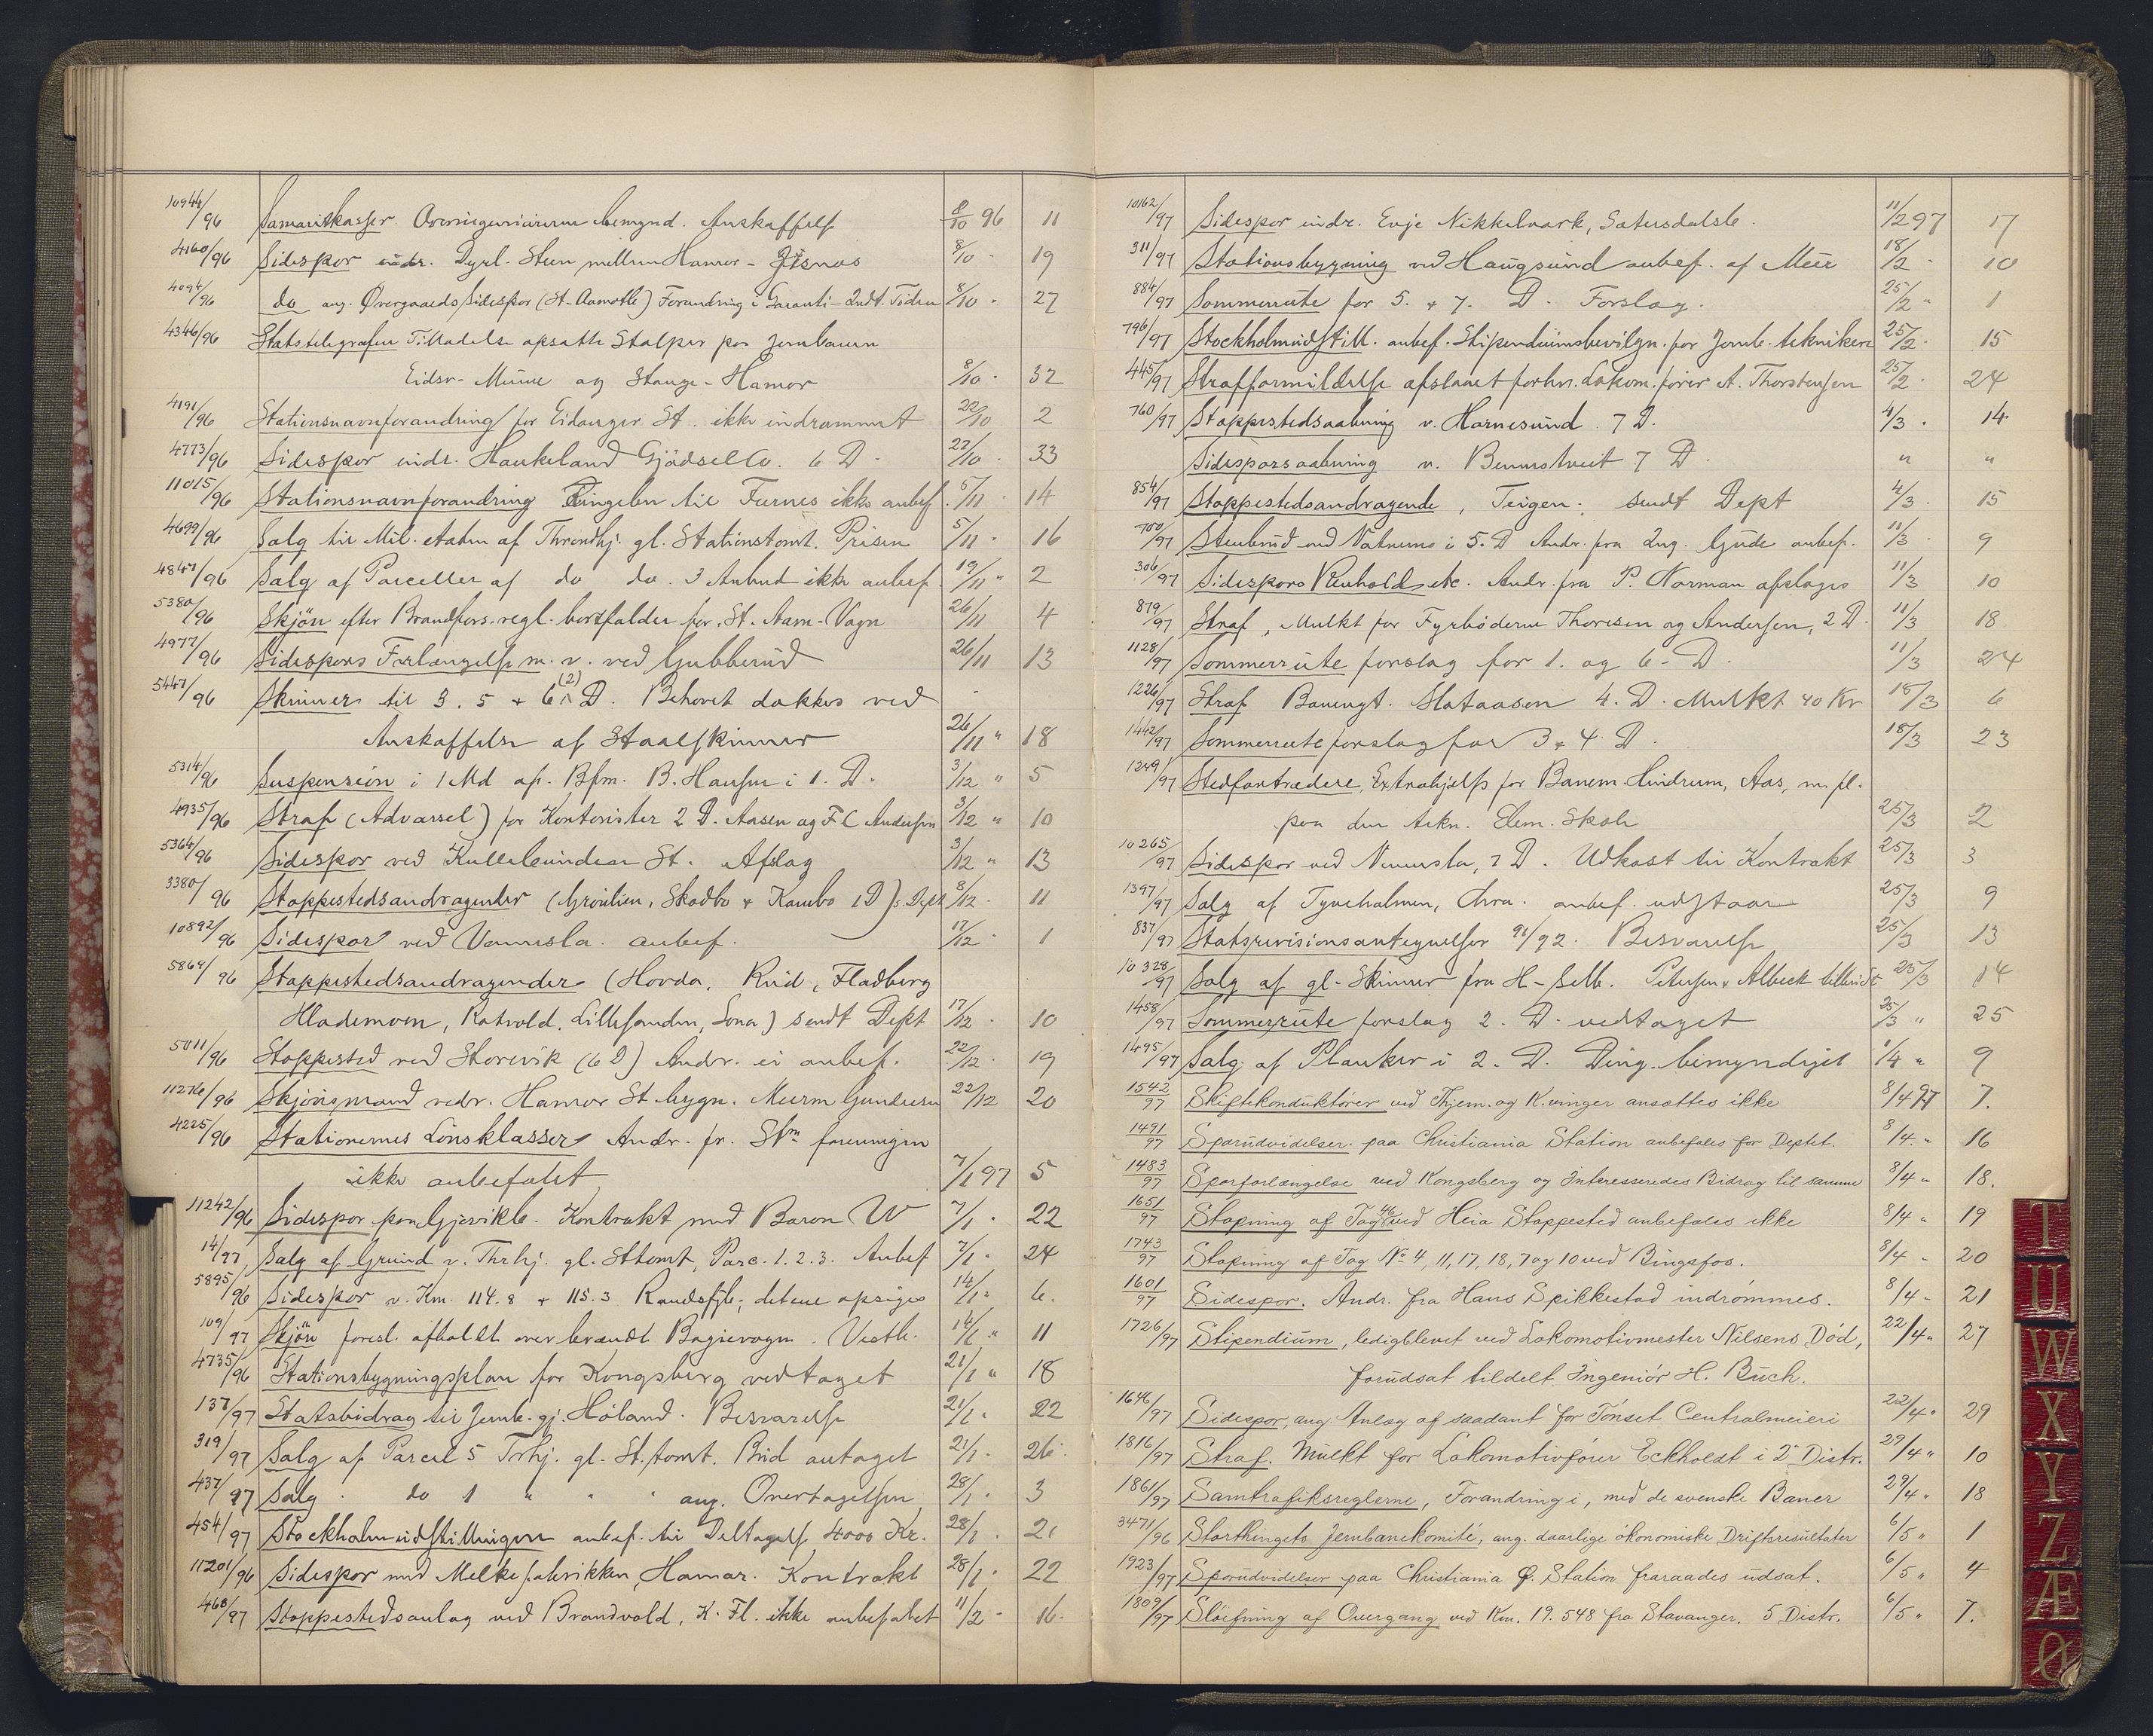 10944/96 Samaritkasser. Overingeniørerne bemynd. Anskaffelse 8/10 96 11
4160/96 Sidespor indr. Dyrl. Steen mellem Hamar - Jesnes 8/10 - 19
4094/96 do ang. Øvergaards Sidespor (St. Aamoth) Forandring i Garanti- 8/10 - 27
4346/96 Statstelegrafen Tilladelse opsatte Stolper paa Jernbanen
Eidsv.- Minne og Stange - Hamar 8/10 - 32
4191/96 Stationsnavnforandring for Eidanger St. ikke indrømmet 22/10 2
4773/96 Sidespor indr. Haukeland Gjødsel Co. 6 D. 22/10 - 33
11015/96 Stationsnavnforandring Ringebu til ikke anbef. 5/11 - 14
4699/96 Salg til Mil. etaten af Throndhj. gl. Stationstomt. Prisen 5/11 - 16
4847/96 Salg af Parceller af do do. 3 Anbud ikke anbef. 19/11 " 2
5380/96 Skjøn efter Brandfors. regl. bortfalder for St. Aam- Vogn 26/11 4
4977/96 Sidespors Forlængelse m. v. ved Gubberud 26/11 13
5447/96 Skinner til 3. 5 + 6 (2) D. Behovet dækkes ved
Anskaffelse af Staalskinner 26/11 " 18
5314/96 Suspension i 1 Md af. Bfm. B. Hansen i 1. D. 3/12 " 5
4935/96 Straf (Advarsel) for Kontorister 2 D. Aasen og F C Andersen 3/12 " 10
5364/96 Sidespor ved Kullebunden St. Afslag 3/12 " 13
3380/96 Stoppestedsandragender (Grønlien, Skodbo + Kambo 1 D): Dept 8/12 - 11
10892/96 Sidespor ved Vennesla. anbef. 17/12 - 1
5864/96 Stoppestedsandragender (Hovda, Rud, Fladberg
Hlademoen, Ratvold, Lillesanden, Sona) sendt Dept 17/12 - 10
5011/96 Stoppested ved Storevik (6 D) Andr. ei anbef. 22/12 - 19
11276/96 Skjønsmand vedr. Hamar St. bygn. Murm Gundersen 22/12 20
4225/96 Stationernes Lønsklasser Andr. fr. Stm foreningen
ikke anbefalet 7/1 97 5
11242/96 Sidespor paa Gjøvikb. Kontrakt med Baron W 7/1 - 22
14/97 Salg af Grund v. Thrhj. gl. Sttomt, Parc. 1. 2. 3. Anbef 7/1 - 24
5895/96 Sidespor v. Km. 114.8 + 115.3 Randsfjb; detene opsiges 14/1 - 6.
109/97 Skjøn foresl. afholdt over brændt Bagievogn. Vestb. 14/1 " 11
4735/96 Stationsbygningsplan for Kongsberg vedtaget 21/1 " 18
137/97 Statsbidrag til Jernb. gj. Høland. Besvarelse 21/1 - 22
319/97 Salg af Parcel 5 Trhj. gl. St. tomt. Bud antaget 21/1 - 26
437/97 Salg do 1 " " " ang. Overtagelsen 28/1 - 3
454/97 Stockholmudstillingen anbef. til Deltagelse 4000 Kr. 28/1 - 21
11201/96 Sidespor med Melkefabrikken, Hamar. Kontrakt 28/1 - 22
468/97 Stoppestedsanlæg ved Brandvold, K. Fl. ikke anbefalet 11/2 - 16
10162/97 Sidespor indr. Evje Nikkelværk, Sætersdalsb. 11/2 97 17
311/97 Stationsbygning ved Haugsund anbef. af Meur 18/2 - 10
884/97 Sommerrute for 5. + 7. D. Forslag. 25/2 " 1
796/97 Stockholmudstill. anbef. Stipendiumsbevilgn. for Jernb. teknikere 25/2 - 15
445/97 Strafformildelse afslaaet forhv. Lokom. fører A. Thorstensen 25/2 - 24
760/97 Stoppestedsaabning v. Hornesund 7 D. 4/3 - 14
Sidesporsaabning v. Bennestveit 7 D. " "
854/97 Stoppestedsandragende, Teigen: sendt Dept 4/3 - 15
700/97 Stenbrud ved Vatnemo i 5. D Andr. fra Ing. Gude anbef. 11/3 - 9
306/97 Sidespors Renhold etc. Andr. fra P. Norman afslages 11/3 10
879/97 Straf, Mulkt for Fyrbøderne Thoresen og Andersen, 2 D. 11/3 18
1128/97 Sommerruteforslag for 1. og 6 - D. 11/3 24
1226/97 Straf Banevgt. Slataasen 4. D. Mulkt 40 Kr 18/3 6
1442/97 Sommerruteforslag for 3 + 4 D. 18/3 23
1249/97 Stedfortrædere, Extrahjælp for Banem. Hindrum, Aas, m. fl.
paa den tekn. Elem. Skole 25/3 2
10265/97 Sidespor ved Vennesla, 7 D. Udkast til Kontrakt 25/3 3
1397/97 Salg af Tyveholmen, Chra. anbef. udstaa 25/3 9
837/97 Statsrevisionsantegnelser 91/92. Besvarelse 25/3 13
10328/97 Salg af gl. Skinner fra H- Selb. Petersen & Albeck tilbudt 25/3 14
1458/97 Sommerruteforslag 2. D. vedtaget 25/3 " 25
1495/97 Salg af Planker i 2. D. Ding. bemyndiget 1/4 " 9
1542/97 Skiftekonduktører ved Thjem. og K.vinger ansættes ikke 8/4 97 7.
1491/97 Sporudvidelser paa Christiania Station anbefales for Deptet. 8/4 " 16
1483/97 Sporforlængelse ved Kongsberg og Interesseredes Bidrag til samme 8/4 " 18.
1651/97 Stopning af Tog 46 ved Heia Stoppested anbefales ikke 8/4 " 19
1743/97 Stopning af Tog No 4, 11, 17, 18, 7 og 10 ved Bingsfos. 8/4 - 20
1601/97 Sidespor. Andr. fra Hans Spikkestad indrømmes. 8/4 - 21
1726/97 Stipendium, ledigblevet ved Lokomotivmester Nilsens Død, 22/4 " 27
forudsat tildelt Ingeniør H. Buch.
1646/97 Sidespor, ang. Anlæg af saadant for Tønset Centralmeieri 22/4 " 29
1816/97 Straf. Mulkt for Lokomotivfører Eckholdt i 2 Distr. 29/4 " 10
1861/97 Samtrafiksreglerne, Forandring i, med de svenske Baner 29/4 " 18
3471/96 Storthingets Jernbanekomité, ang. daarlige økonomiske Driftsresultater 6/5 " 1
1923/97 Sporudvidelser paa Christiania Ø. Station fraraades udsat. 6/5 " 4
1809/97 Sløifning af Overgang ved Km. 19.548 fra Stavanger. 5 Distr. 6/5 " 7.
T
U
W
X
Y
Z
Æ
Ø